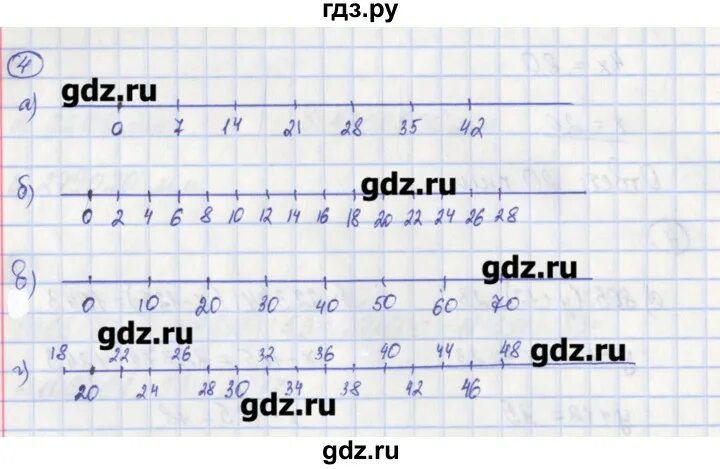 гдз.ру
4
а)
gdz.ru
0 7 14 21 28 35 42
б)
gdz.ru
0 2 4 6 8 10 12 14 16 18 20 22 24 26 28
в)
gdz.ru
0 10 20 30 40 50 60 70
gdz.ru
18 22 26 32 36 40 44 48 gdz.ru
г)
20 24 28 30 34 38 42 46
gdz.ru
gdz.ru